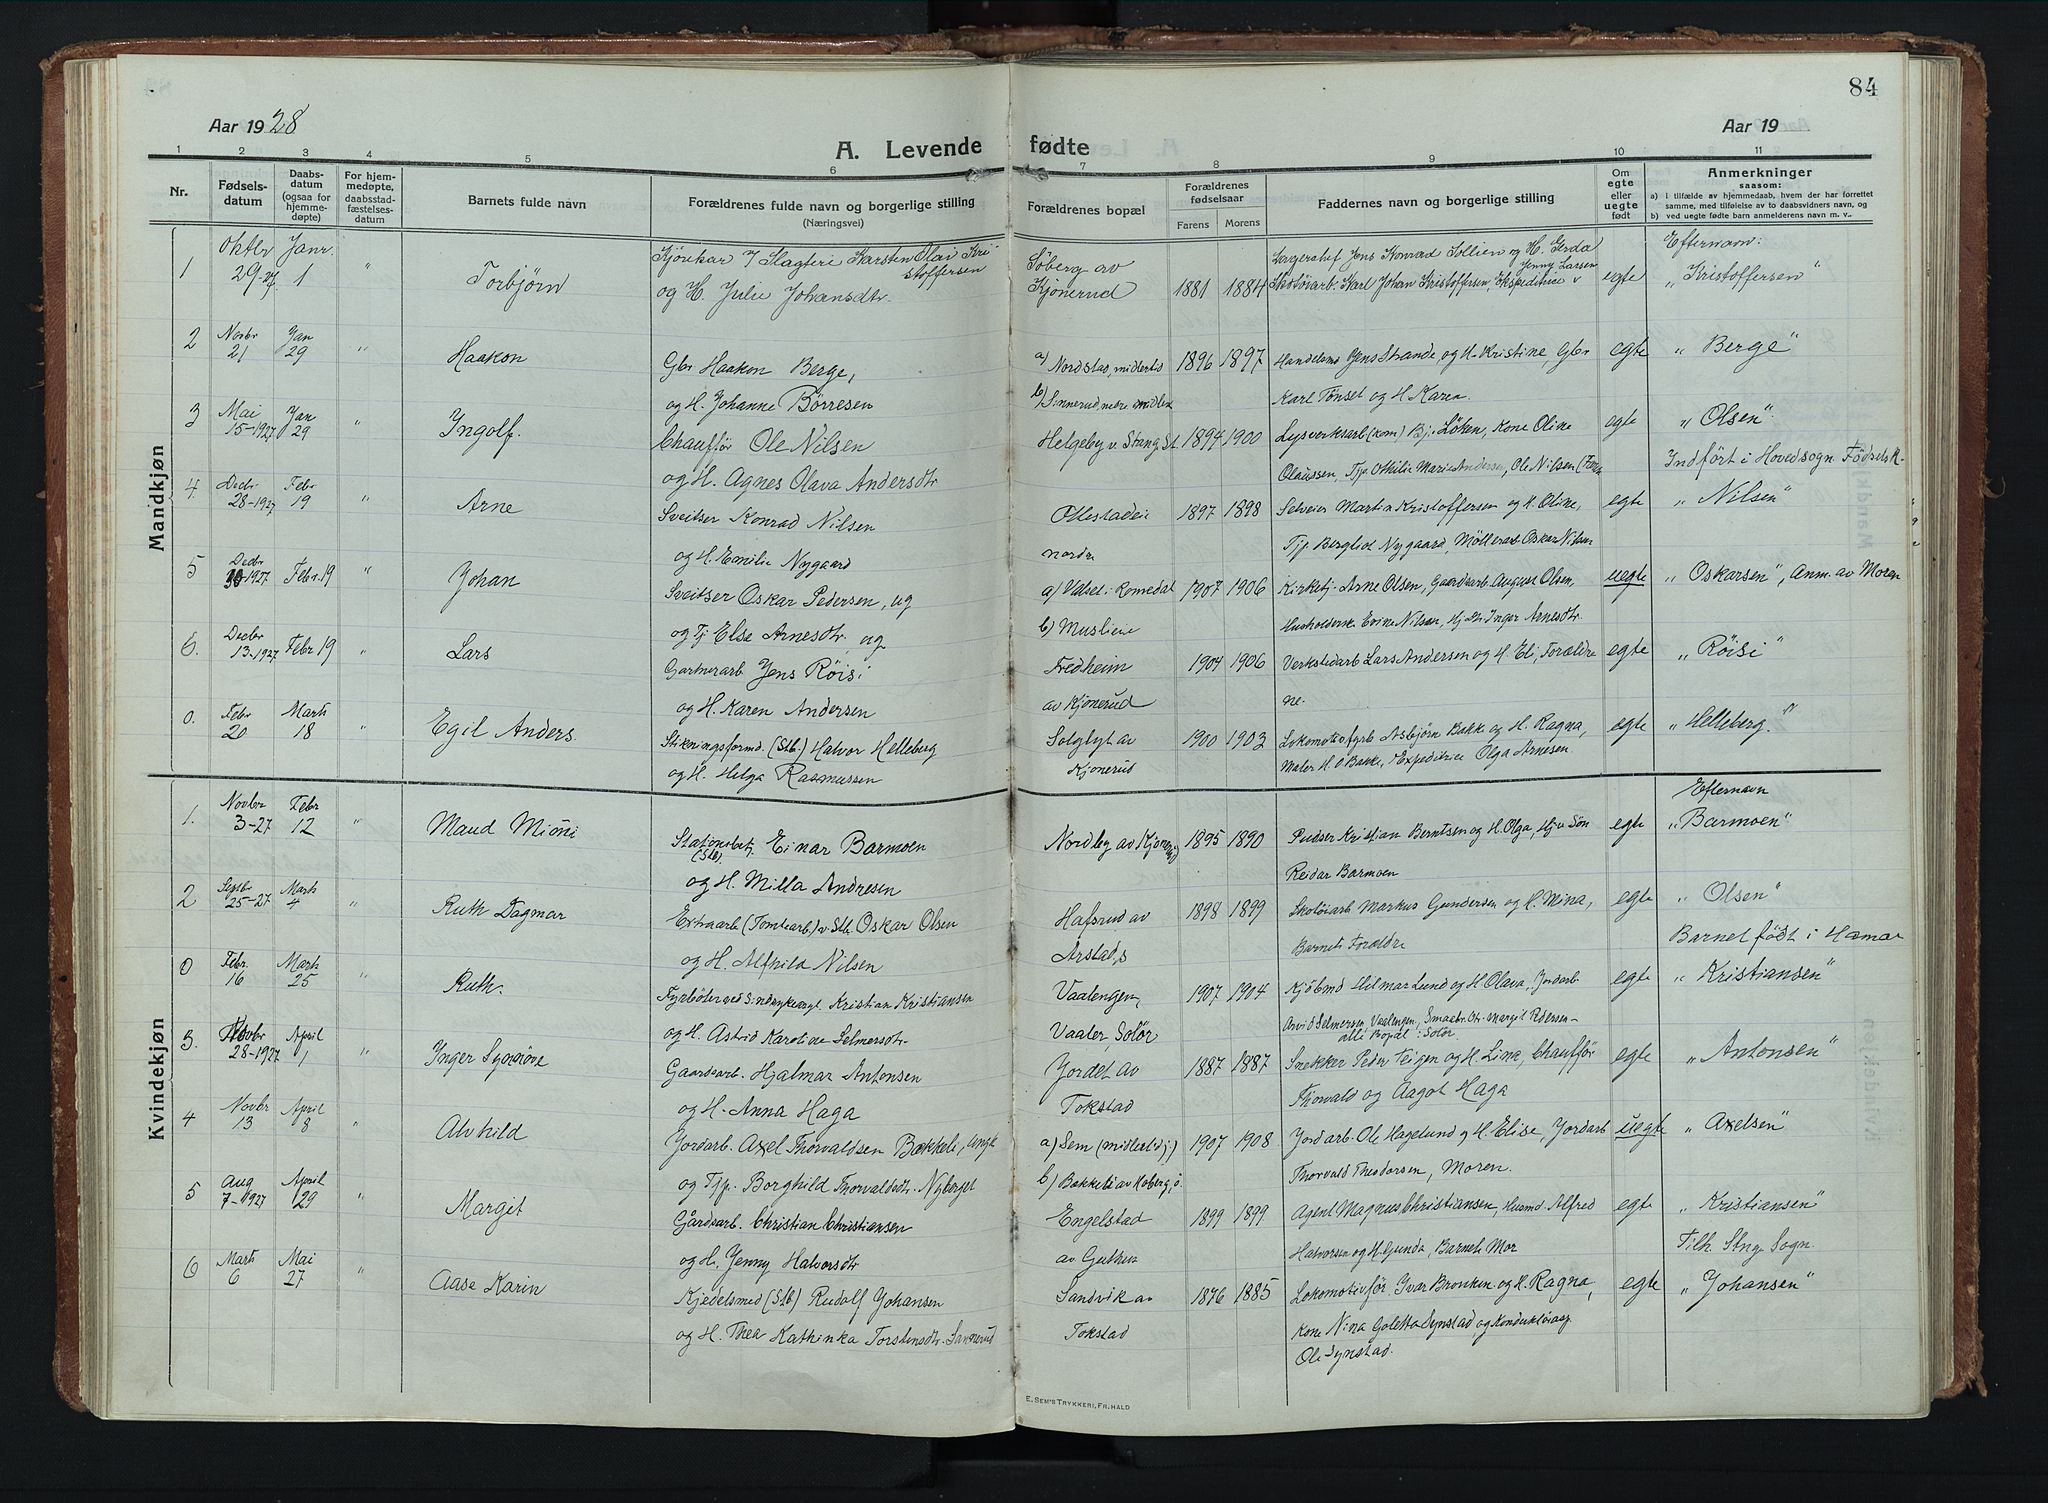 84
Aar 1928
A. Levende fødte
Aar 19
1 2 3 4 5 6 7 8 9 10 11
Nr. Fødsels-datum Daabs-datum (ogsaa for hjemme-døpte) For hjem-medøpte, daabsstad-fæstelses-datum Barnets fulde navn Forældrenes fulde navn og borgerlige stilling (Næringsvei) Forældrenes bopæl Forældrenes fødselsaar Farens Morens Faddernes navn og borgerlige stilling Om egte eller uegte født Anmerkninger saasom:
a) i tilfælde av hjemmedaab, hvem der har forrettet samme, med tilføielse av to daabsvidners navn, og
b) ved uegte fødte barn anmelderens navn m. v.
Mandkjøn
1 Oktbr 29-27 Janr. 1 " Torbjørn Karsten Olai Kristoffersen Søberg av Efternavn:
og H. Julie Johansdtr. Kjonerud 1881 1884 Karl Johan Kristoffersen, egte "Kristoffersen"
2 Novbr 21 Jan 29 " Haakon Gbr Haakon Berge, a) Nordstad, 1896 1897 Jens Strande, og H. Kristine, Gbr egte "Berge"
og H. Johanne Børresen b) Sinnerud, nedre Karl Tønset og H. Karen
3 Mai 15-1927 Jan 29 " Ingolf. Chauffør Ole Nilsen Helgeby v. Stang St. 1894 1900 Lysverksarb (kom) Bj. Løken, Kone Oline egte "Olsen"
og H. Agnes Olava Andersdtr Olaussen, Tjp. Othilie Marie Andersen, Ole Nilsen Indført i Hovedsogn. Fødselsk-
4. Decbr 28-1927 Febr 19 " Arne Sveitser Konrad Nilsen Ollestadeie 1897 1898 Selveier Martin Kristoffersen og H. Oline, egte "Nilsen"
og H. Emilie Nygaard nordre Tjp. Bergliot Nygaard, Møllerarb Oskar Nilsen
5 Decbr 30-1927 Febr. 19 " Johan Sveitser Oskar Pedersen, ug a) Valset i Romedal 1907 1906 Kirketj. Arne Olsen, Gaardsarb. August Olsen, uegte "Oskarsen", Anm. av Moren
og Tj Else Arnesdtr, ug b) Muslieie Husholderske Evine Nilsen, Hj Inger Arnesdtr.
6. Decbr 13-1927 Febr 19 " Lars Gartnerarb Jens Røisi Fredheim 1904 1906 Verkstedarb Lars Andersen og H. Eli, Forældre egte "Røisi"
og H. Karen Andersen av Kjonerud ne.
0. Febr 20 Marts 18 " Egil Anders. Stikningsformd. (Stb.) Halvor Helleberg Solglyt av 1900 1903 Lokomotivfyrb Asbjørn Bakk og H. Ragna, egte "Helleberg."
og H. Helga Rasmussen Kjonerud Maler H O Bakke, Expeditrice Olga Arnesen.
Kvindekjøn
1. Novbr 3-27 Febr 12 " Maud Mimi Stationsbetj. (Stb). Einar Barmoen Nordby av Kjonerud 1895 1890 Pudser Kristian Berntsen og H. Olga, Hj. v. Søn egte Efternavn "Barmoen"
og H. Milla Andresen Reidar Barmoen
2 Septbr 25-27 Marts 4 " Ruth Dagmar Extraarb (Tomtearb) v. Stb. Oskar Olsen Hafsrud av 1898 1899 Skotøiarb Markus Gundersen og H. Mina, egte "Olsen"
og H. Alfhild Nilsen Arstad, s Barnets Forældre Barnet født i Hamar
0 Febr. 16 Marts 25 " Ruth. Kristian Kristiansen Vaalengen, 1907 1904 Kjøbmd Hilmar Lund og H. Olava, Jordarb egte "Kristiansen"
og H. Astrid Karoline Selmersdtr. Vaaler, Solør Arvid Selmersen, Vaalengen, Smaabr. Dtr. Margit Pedersen - alle Bopæl: Solør.
3. Novbr 28-1927 April 1 " Inger Synnøve Gaardsarb. Hjalmar Antonsen Jordet av 1887 1887 Snekker Peder Teigen og H. Lina, Chauffør egte "Antonsen"
og H. Anna Haga Tokstad Thorvald og Aagot Haga
4 Novbr 13 April 8 " Alvhild Jordarb. Axel Thorvaldsen Bækkeli, ungk a) Sem (midlertidj:) 1907 1908 Jordarb. Ole Hagelund og H. Elise, Jordarb uegte "Axelsen"
og Tjp. Borghild Thorvaldsdtr. Nyberget b) Bækkeli av Koberg, ö Thorvald Theodorsen, Moren.
5 Aug 7-1927 April 29 " Margit Gårdsarb. Christian Christiansen Engelstad 1899 1899 Agent Magnus Christiansen, Husmd. Alfred egte "Kristiansen"
og H. Jenny Halvorsdtr av Guthus Halvorsen og H. Gunda, Barnets Mor Tilh. Stnge Sogn.
6 Marts 6 Mai 27 " Aase Karin Kjedelsmed (Stb.) Rudolf Johansen Sandvik av 1876 1885 Lokomotivfør. Ivar Bronken og H. Ragna, egte "Johansen"
og H. Thea Kathinka Torstensdtr. Tokstad Kone Nina Goletta Synstad og Konduktøiasp
Ole Synstad.
E. SEM'S TRYKKERI, FR.HALD